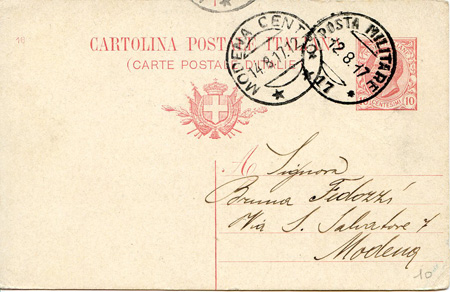 16
CARTOLINA POSTALE ITALIANA
(CARTE POSTALE D'ITALIE)
MODENA CENTRO
14.8.17.17
POSTA MILITARE
12.8.17
CENTESIMI 10
A Signora
Bruna Fedozzi
Via S. Salvatore 7
Modena
10